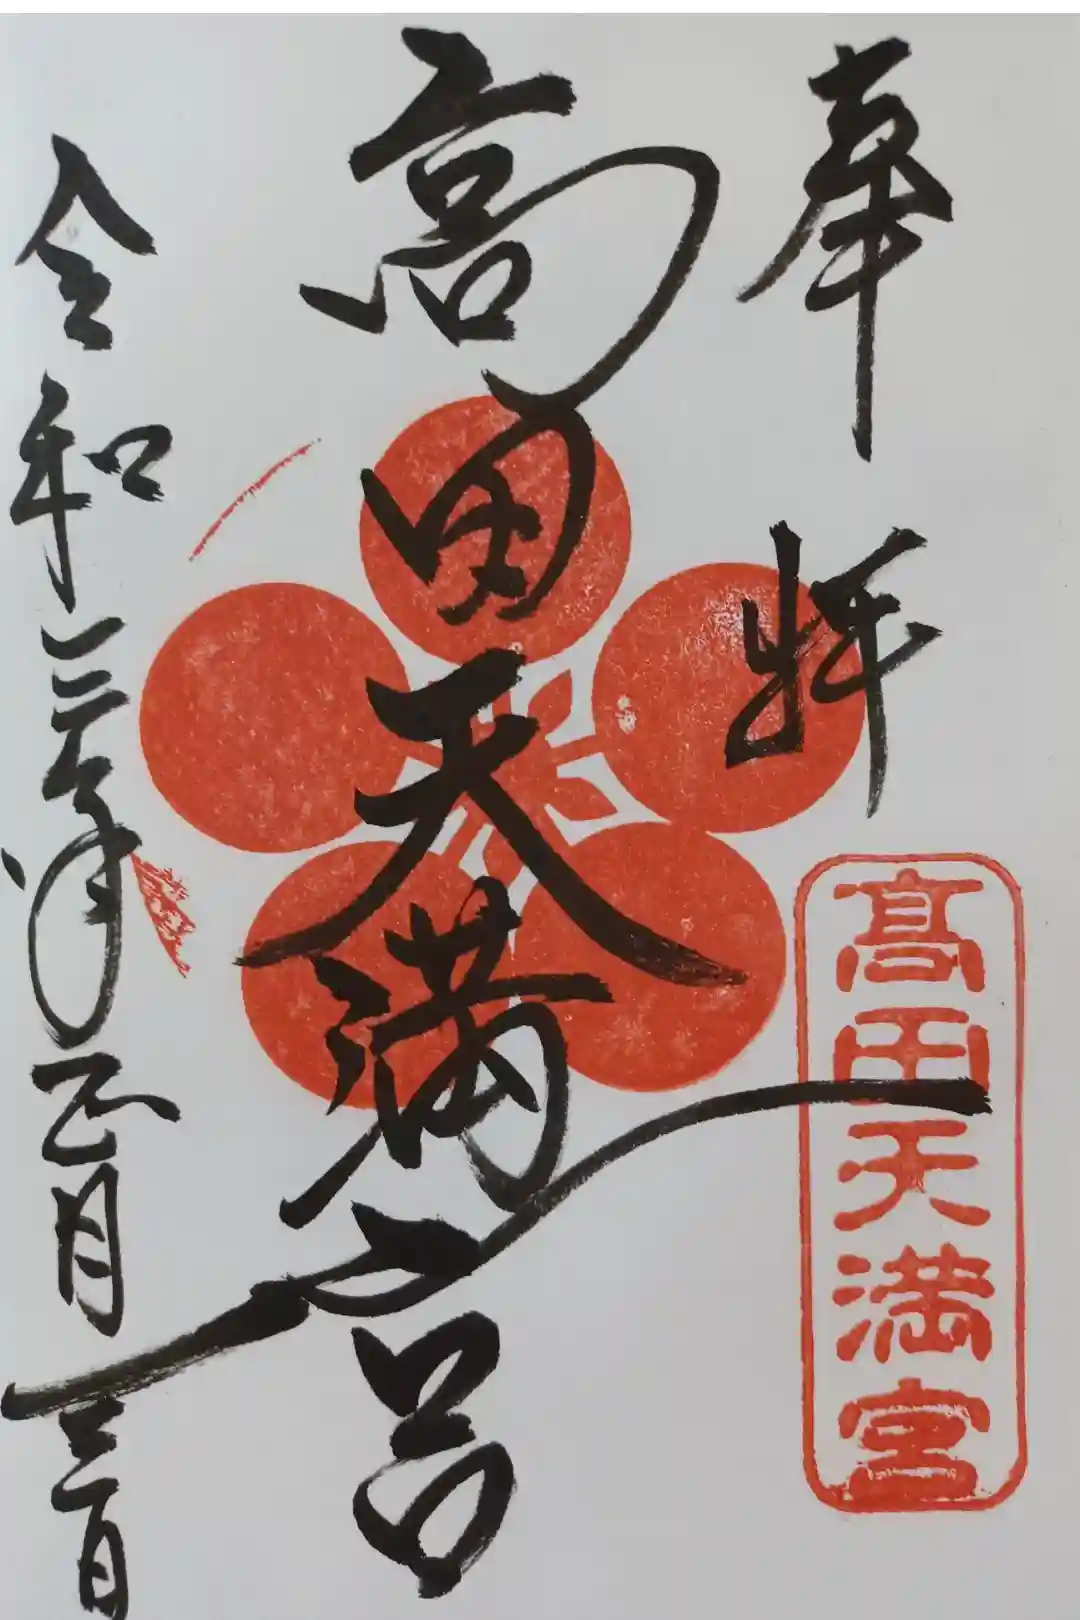 奉拝
高田天満宮
高田天満宮
令和三年正月三日